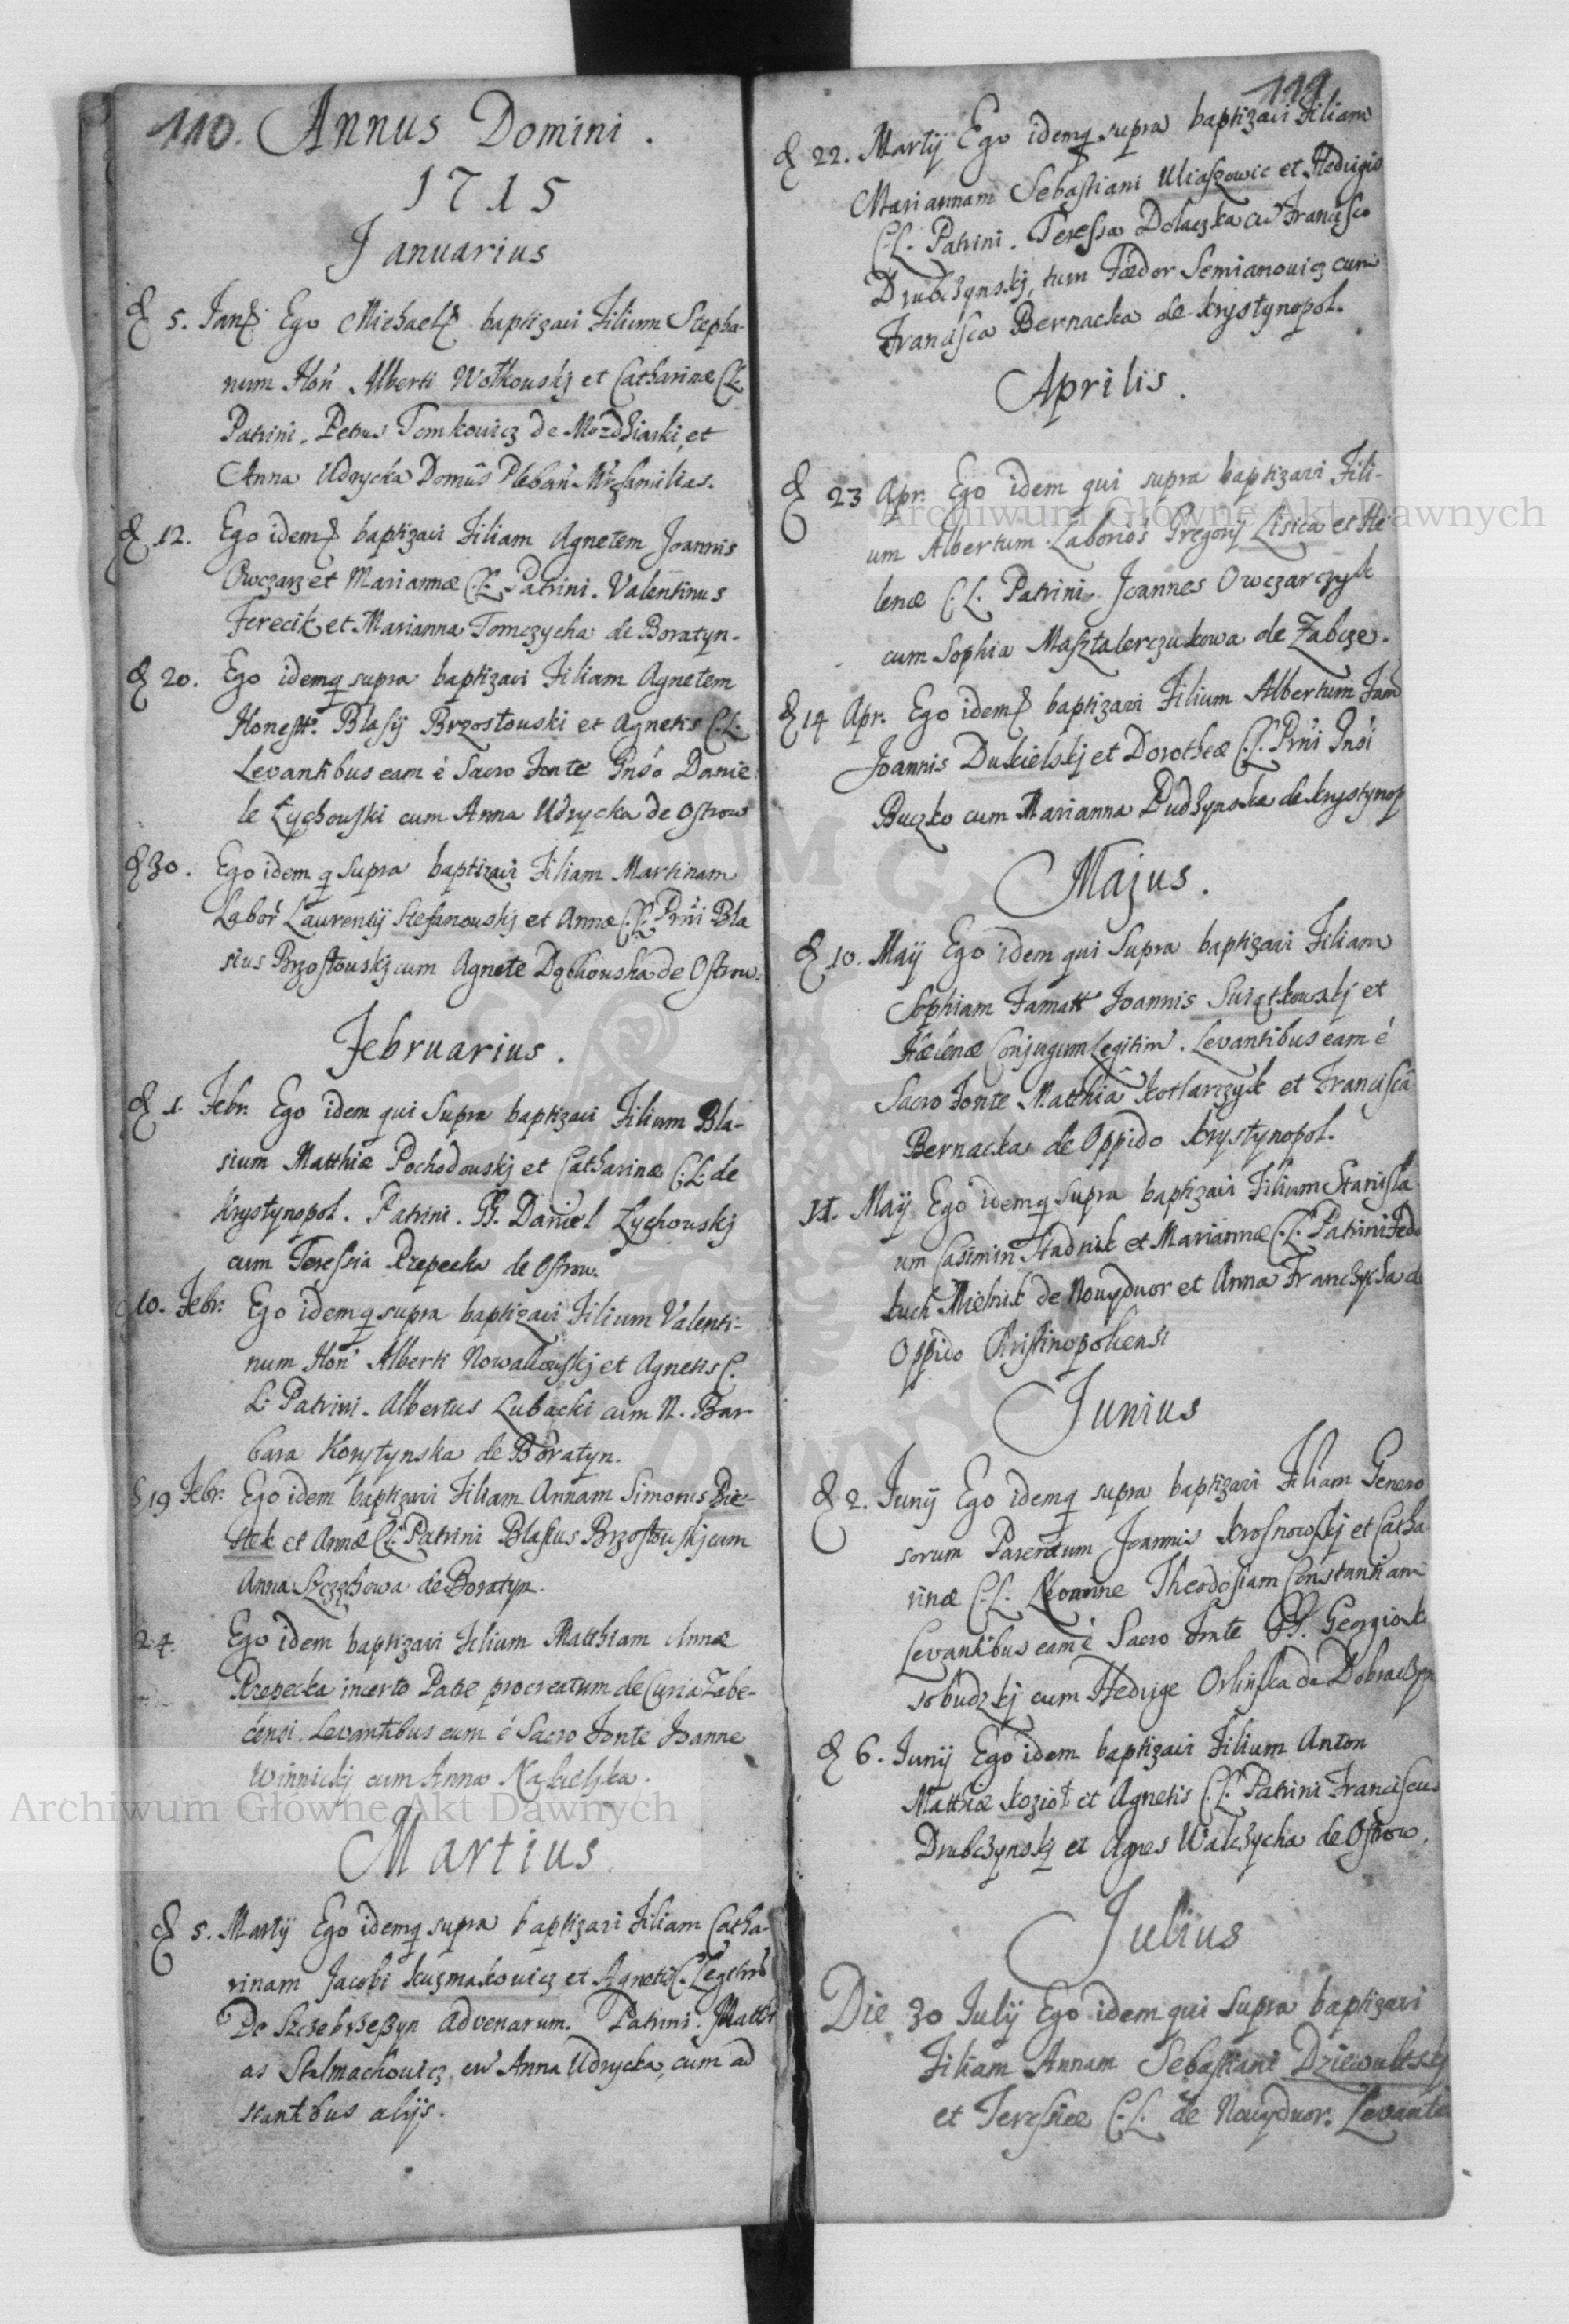 110. Annus Domini.
1715
Januarius
5. Ego Michael baptizavi Filium Stepha-
num Hon Alberti Wołkouskj et Catharinæ C.L.
Patrini. Petrus Tomkouicz de et
Anna Udrycka
12. Ego idem baptizavi Filiam Agnetem Joannis
Owczarz et Mariannæ C.L. Patrini. Valentinus
Ferecik et Marianna Tomczycha de Boratyn.
20. Ego idemq supra baptizavi Filiam Agnetem
Blasij Brzostouski et Agnetis C.L.
Levantibus eam è Sacro Fonte Danie
le Łychouski cum Anna Udrycka de Ostrow
30. Ego idem q supra baptizavi Filiam Martinam
Labor Laurentij Stefanouskj et Annæ C.L. Bla
sius Brzostouskj cum Agnete de Ostrow.
Februarius.
1. Febr. Ego idem qui supra baptizavi Filium Bla-
sium Matthiæ Pochodouskj et Catharinæ C.L. de
Krystynopol. Patrini. Daniel Łychouskj
cum Teressia Rzepecka de Ostrow.
10. Febr. Ego idemq supra baptizavi Filium Valenti-
num Hon Alberti et Agnetis C.
L. Patrini. Albertus Lubacki cum N. Bar
bara Korytynska de Boratyn.
19 Febr. Ego idem baptizavi Filiam Annam Simonis Bie-
et Annæ C.L. Patrini Blasius Brzostouskj cum
Anna de Boratyn.
24. Ego idem baptizavi Filium Matthiam Annæ
Rzepecka incerto Patre procreatum de Curia Zabe-
censi. Levantibus eum è Sacro Fonte Joanne
Winnickj cum Anna
Martius.
5. Martij Ego idemq supra baptizavi Filiam Catha-
rinam Jacobi Kuzmakowicz et Agnetis
De Szczebrzeszyn advenarum. Patrini. Matthi
as Stalmachowicz, cu Anna Udrycka, cum ad
stantibus alijs.
111
22. Martij Ego idemq supra baptizavi Filiam
Mariannam Sebastiani et Hedvigis
C.L. Patrini. Teressa Dolaczka cu Francisco
Drubczynskj, tum Fædor Semianouicz cum
Francisca Bernacka de Krystynopol.
Aprilis.
23 Apr. Ego idem qui supra baptizavi Fili-
um Albertum Gregorij Lisica et He
lenæ C.L. Patrini Joannes Owczarczyk
cum Sophia Masztalerczukowa de Zabcze.
14 Apr. Ego idem baptizavi Filium Albertum Fam
Joannis Dukielskj et Dorotheæ C.L.
Buczko cum Marianna Dudzynska de Krystynop
Majus.
10. Maij Ego idem qui Supra baptizavi Filiam
Sophiam Famatt Joannis Suiątkouskj et
Hælenæ Conjugum Legitim. Levantibus eam è
Sacro Fonte Matthia Kotlarczyk et Francisca
Bernacka de Oppido Krystynopol.
Maij Ego idemq supra baptizavi Filium Stanisla
um Casimiri Stadnik et Mariannæ C.L. Patrini Fed
Mielnik de Nouydwor et Anna Franczycha de
Oppido Christinopoliensi
Junius
2. Junij Ego idemq supra baptizavi Filiam Genero
sorum Parentum Joannis Krosnowskj et Catha
rinæ C.L. Nomine Theodosiam Constantiam
Levantibus eam è Sacro Fonte Georgio K
sobudzkj cum Hedvige Orlinska de Dobraczyn
6. Junij Ego idem baptizavi Filium Anton
Matthiæ Kozioł et Agnetis C.L. Patrini Franciscus
Drubczynskj et Agnes Walczycha de Ostrow.
Julius
Die 30 Julij Ego idem qui supra baptizavi
Filiam Annam Sebastiani Dziewultskj
et Teressiæ C.L. de Nouydwor. Levante
Archiwum Główne Akt Dawnych
Archiwum Główne Akt Dawnych